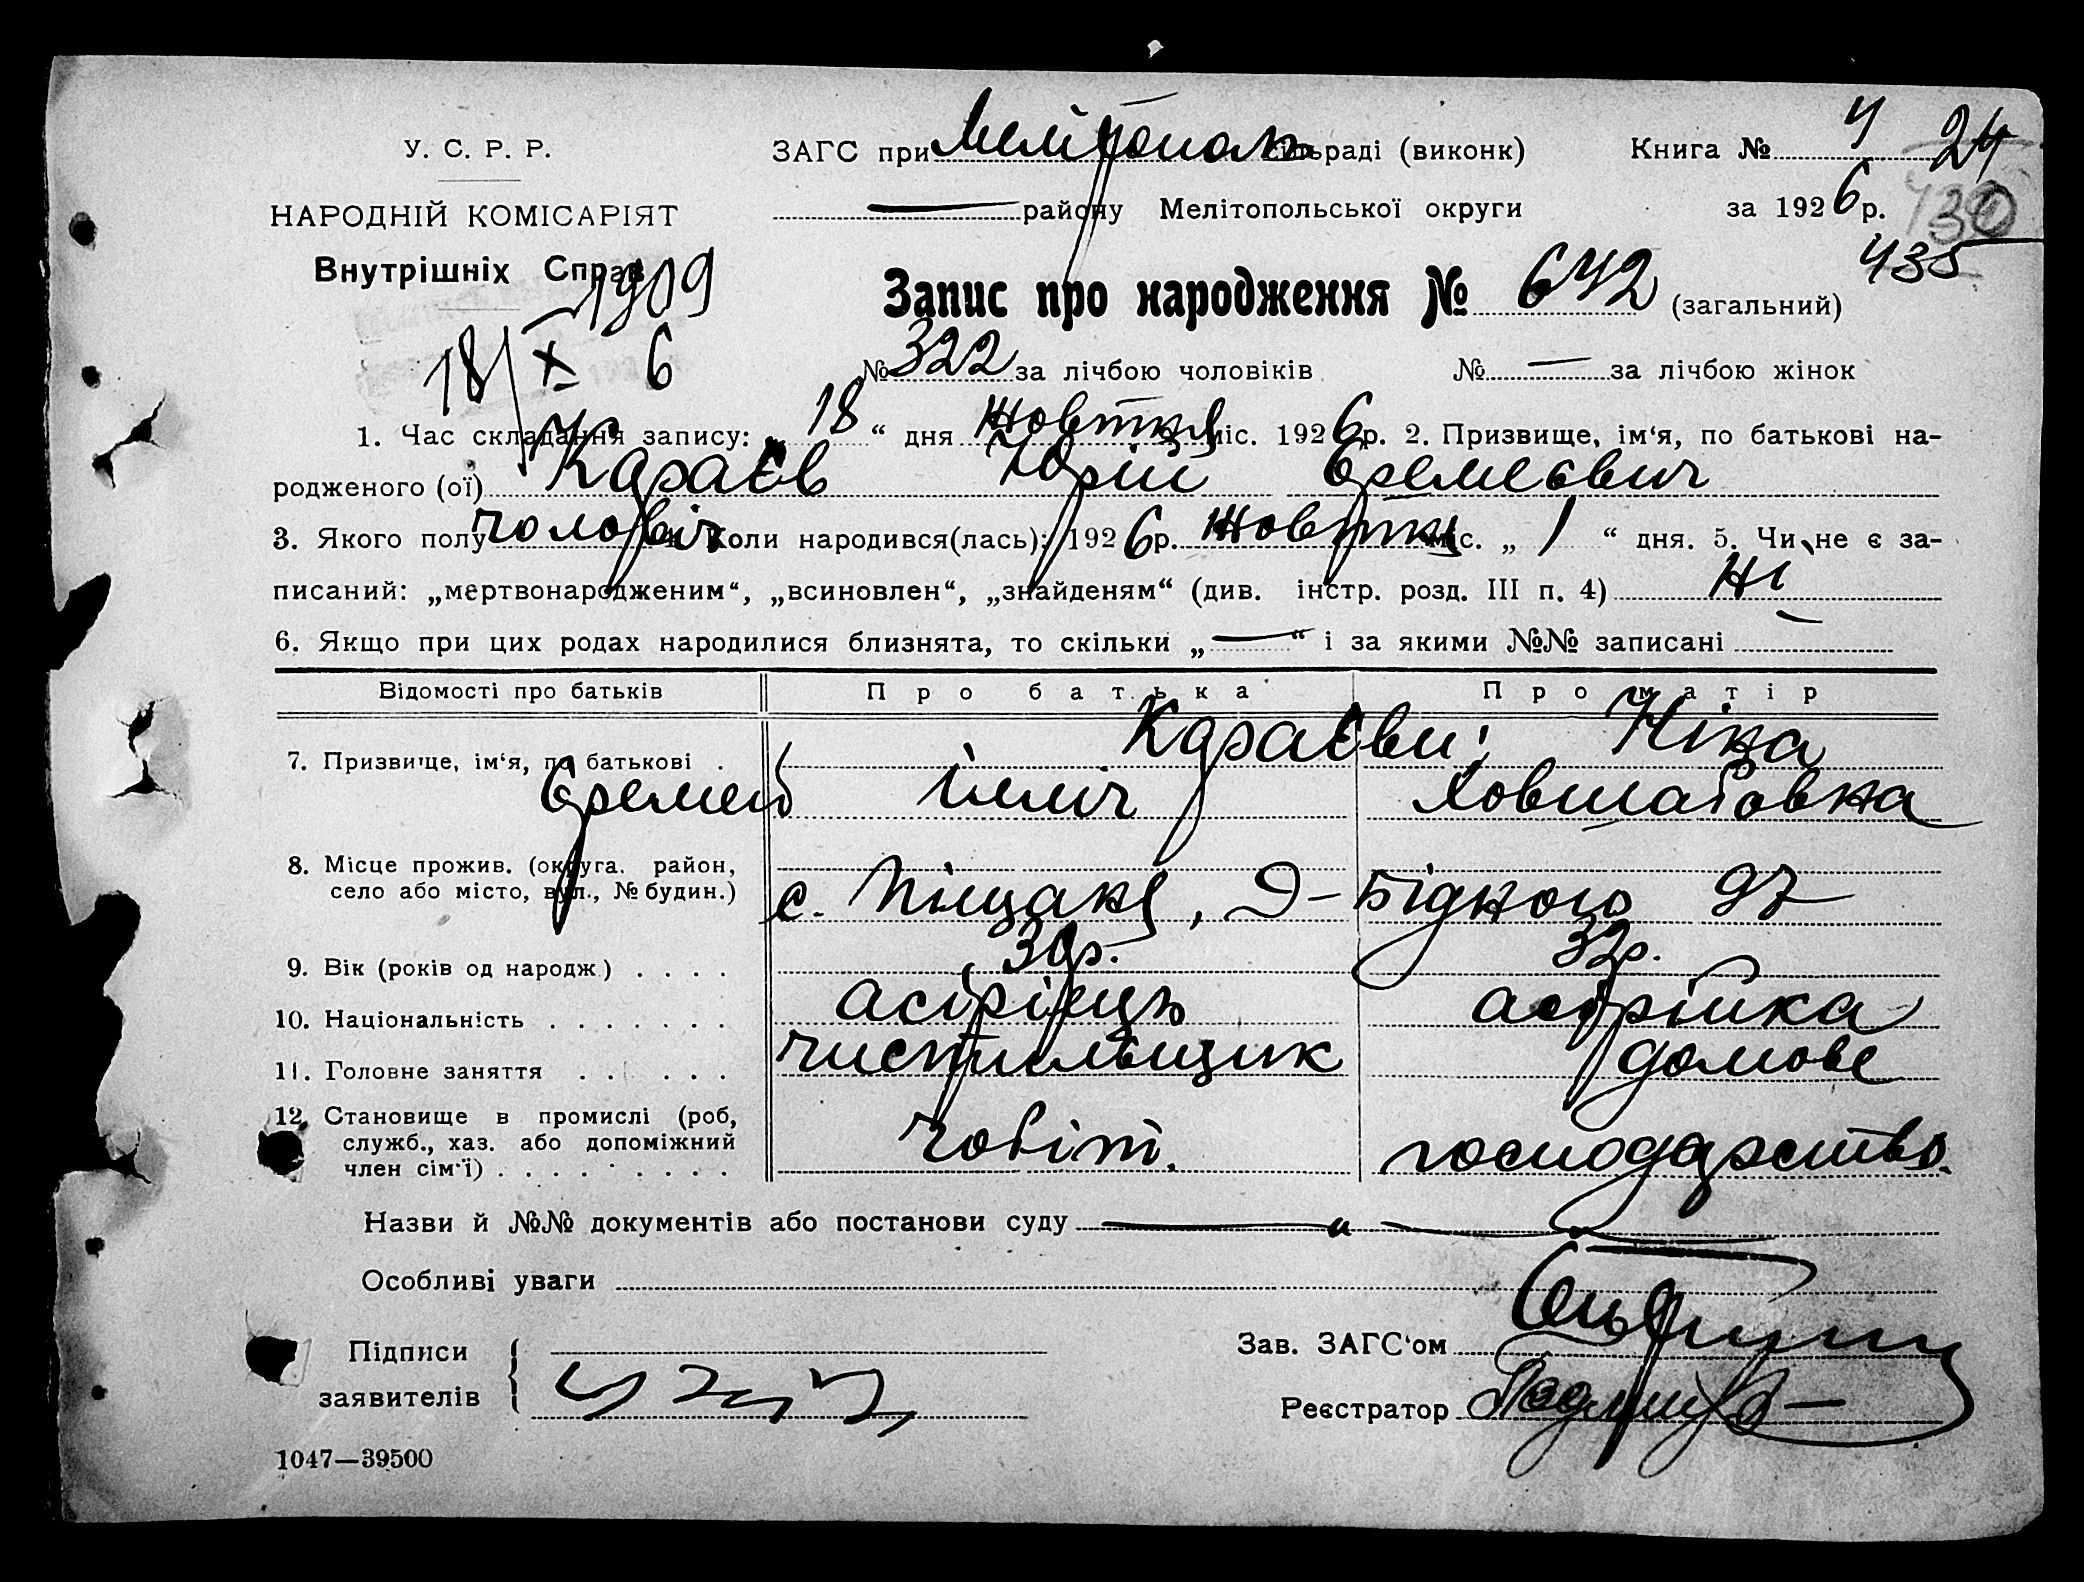 У. С. Р. Р.
НАРОДНІЙ КОМІСАРІЯТ
Внутрішніх Справ
1909
18/X 6
ЗАГС при Мелітополь сільраді (виконк) Книга № 4 24
— району Мелітопольської округи за 1926 р. 430
435
Запис про народження № 642 (загальний)
№ 322 за лічбою чоловіків № — за лічбою жінок
1. Час складання запису: „ 18 “ дня Жовтня міс. 1926 р. 2. Призвище, ім‘я, по батькові на-
родженого (ої) Караєв Юрій Єремеєвич
3. Якого полу чоловіч 4. Коли народився(лась): 1926 р. Жовтня міс. „ 1 “ дня. 5. Чи не є за-
писаний: „мертвонародженим“, „всиновлен“, „знайденям“ (див. інстр. розд. III п. 4) Ні
6. Якщо при цих родах народилися близнята, то скільки „ — “ і за якими №№ записані —
Відомості про батьків Про батька Про матір
7. Призвище, ім‘я, по батькові . Караєви; Ніна
Єремей Ілліч
8. Місце прожив. (округа. район,
село або місто, вул., № будин.) с. Піщане, Д-Бідного 97
9. Вік (років од народж.) . . . . 30р. 32р.
10. Національність . . . . . . . асірієць асірійка
11. Головне заняття . . . . . чистильщик домове
12. Становище в промислі (роб,
служб., хаз. або допоміжний
член сім‘ї) . . . . . . . . . чобіт. господарство.
Назви й №№ документів або постанови суду — „ —
Особливі уваги
Підписи
заявителів
Зав. ЗАГС‘ом
Реєстратор
1047—39500